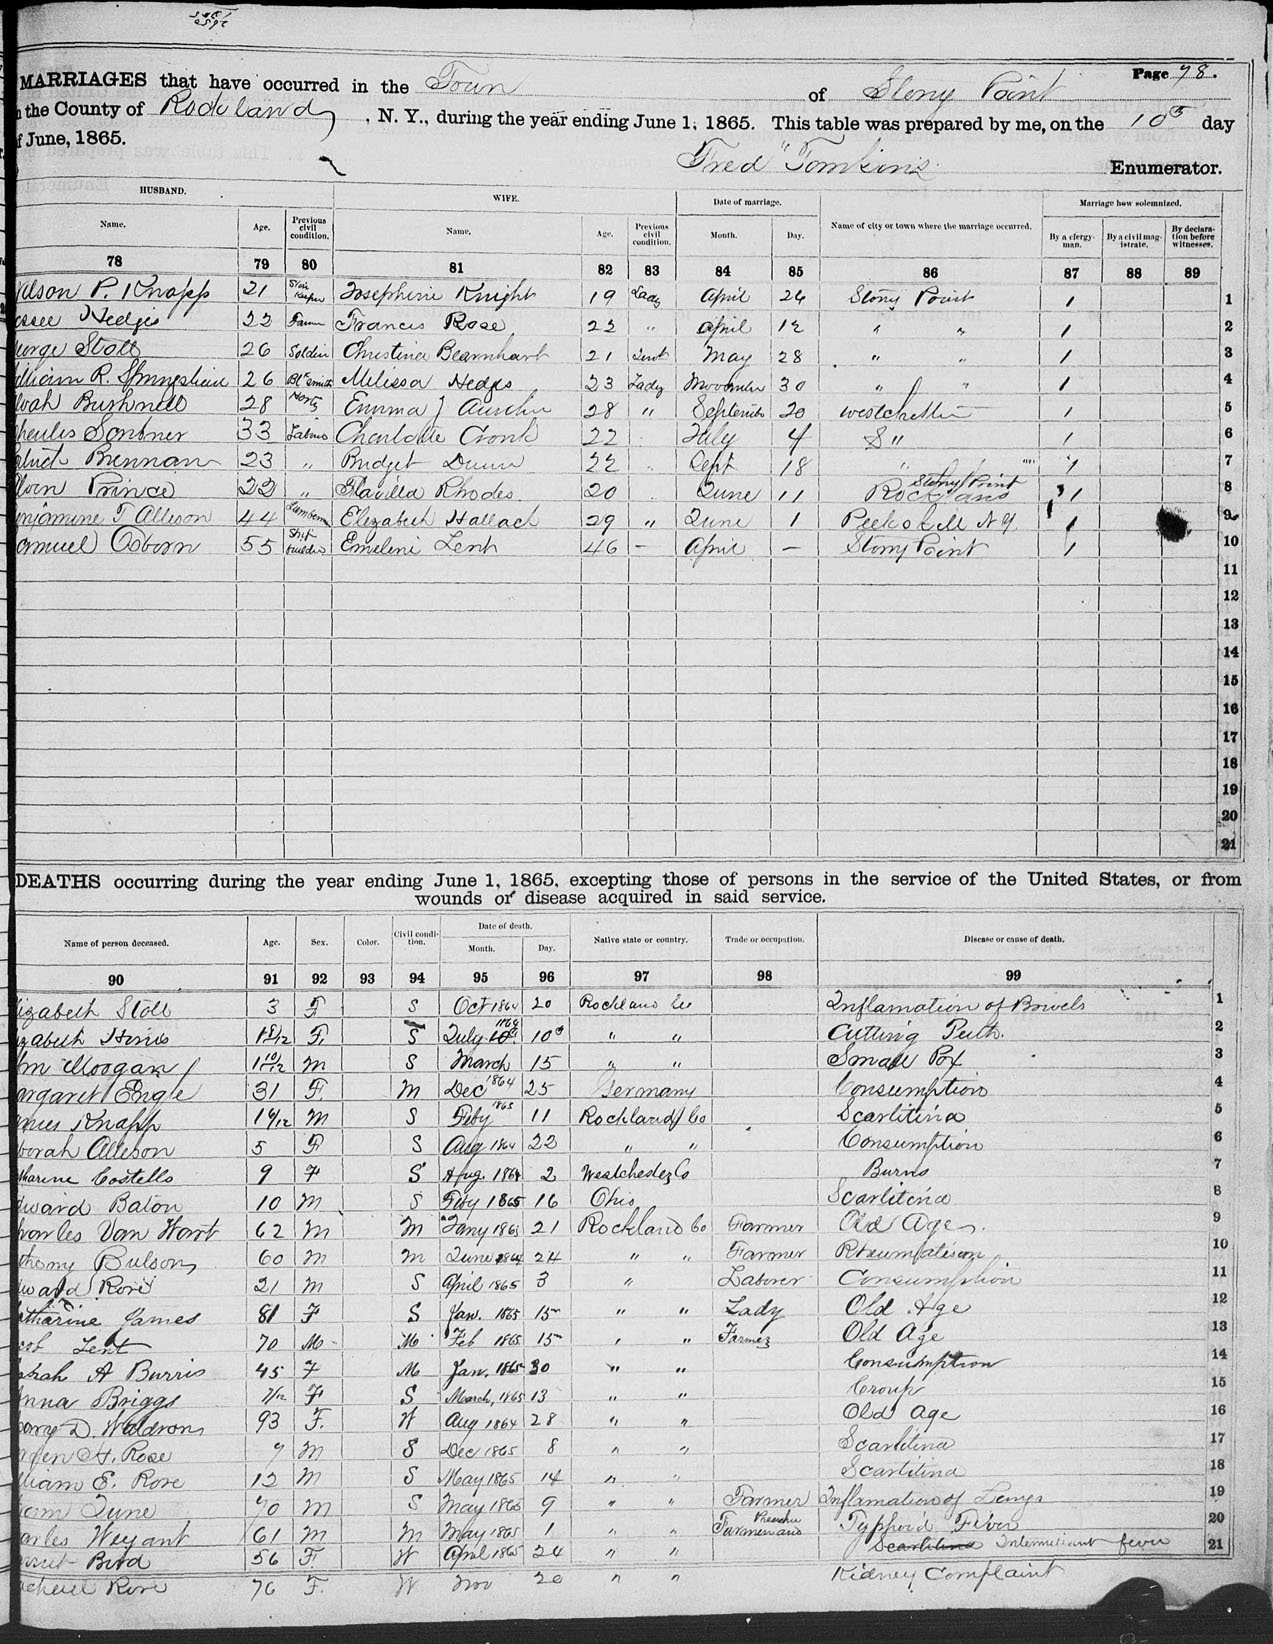 MARRIAGES that have occurred in the Town of Stony Point Page 78.
the County of Rockland, N. Y., during the year ending June 1, 1865. This table was prepared by me, on the 10th day
of June, 1865.
Fred Tomkins Enumerator.
HUSBAND. WIFE. Date of marriage. Name of city or town where the marriage occurred. Marriage how solemnized.
Name. Age. Previous civil condition. Name. Age. Previous civil condition. Month. Day. By a clergyman. By a civil magistrate. By declaration before witnesses.
78 79 80 81 82 83 84 85 86 87 88 89
ilson P. Knapp 21 Josephine Knight 19 Lady April 26 Stony Point 1 1
essee Hedges 22 Farmer Francis Rose 22 " April 12 " " 1 2
eorge Stoll 26 Soldier Christina Bearnhart 21 May 28 " " 1 3
illiam R. Springsteen 26 Bk Smith Melissa Hedges 23 Lady November 30 " " 1 4
Bushnell 28 Emma J 28 " September 20 Westchester 1 5
Scribner 33 Labor Charlotte Cronk 22 July 4 S " 1 6
Brennan 23 " Bridget Dunn 22 Sept 18 " " 1 7
Prince 22 " Rhodes 20 June 11 Stony Point Rockland 1 8
enjamine T Allison 44 Elizabeth Hallack 29 " June 1 Peekskill N Y. 1 9
amuel Osborn 55 Ship builder Emeline Lent 46 – April – Stony Point 1 10
11
12
13
14
15
16
17
18
19
20
21
DEATHS occurring during the year ending June 1, 1865, excepting those of persons in the service of the United States, or from
wounds or disease acquired in said service.
Name of person deceased. Age. Sex. Color. Civil condition. Date of death. Month. Day. Native state or country. Trade or occupation. Disease or cause of death.
90 91 92 93 94 95 96 97 98 99
izabeth Stoll 3 F S Oct 1864 20 Rockland Co Inflamation of Bowels 1
izabeth 1 8/12 F. S July 1864 10 " " Cutting Teeth. 2
Moogan 1 10/12 M S March 15 " " Small Pox 3
argaret Engle 31 F. M Dec 1864 25 Germany Consumption 4
ames Knapp M S Feby 1865 11 Rockland Co Scarlitina 5
borah Allison 5 F S Aug 1864 22 " " Consumption 6
tharine Costello 9 F S Aug. 1864 2 Westchester Co Burns 7
dward Baton 10 M S Feby 1865 16 Ohio Scarlitina 8
harles Van Wart 62 M M Jany 1865 21 Rockland Co Farmer Old Age. 9
thony Bulson 60 M M June 1864 24 " " Farmer Rheumatism 10
dward Rose 21 M S April 1865 3 " Laborer Consumption 11
atharine James 81 F S Jan. 1865 15 " " Lady Old Age 12
cob Lent 70 M M Feb 1865 15 " " Farmer Old Age 13
arah A Burris 45 F M Jan. 1865 30 " " Consumption 14
nna Briggs 7/12 F S March, 1865 13 " " Croup 15
D. Waldron 93 F. W Aug 1864 28 " " Old Age 16
H. Rose 7 M S Dec 1865 8 " " Scarlitina 17
lliam E. Rose 12 M S May 1865 14 " " Scarlitina 18
June 70 M S May 1865 9 " " Farmer Inflamation of Lungs 19
arles Weyant 61 M M May 1865 1 " " Farmer and Preacher Typhoid Fever 20
Bird 56 F. W April 1865 24 " " Scarlitina Intermittant fever 21
Rose 76 F. W Nov 20 " " Kidney Complaint